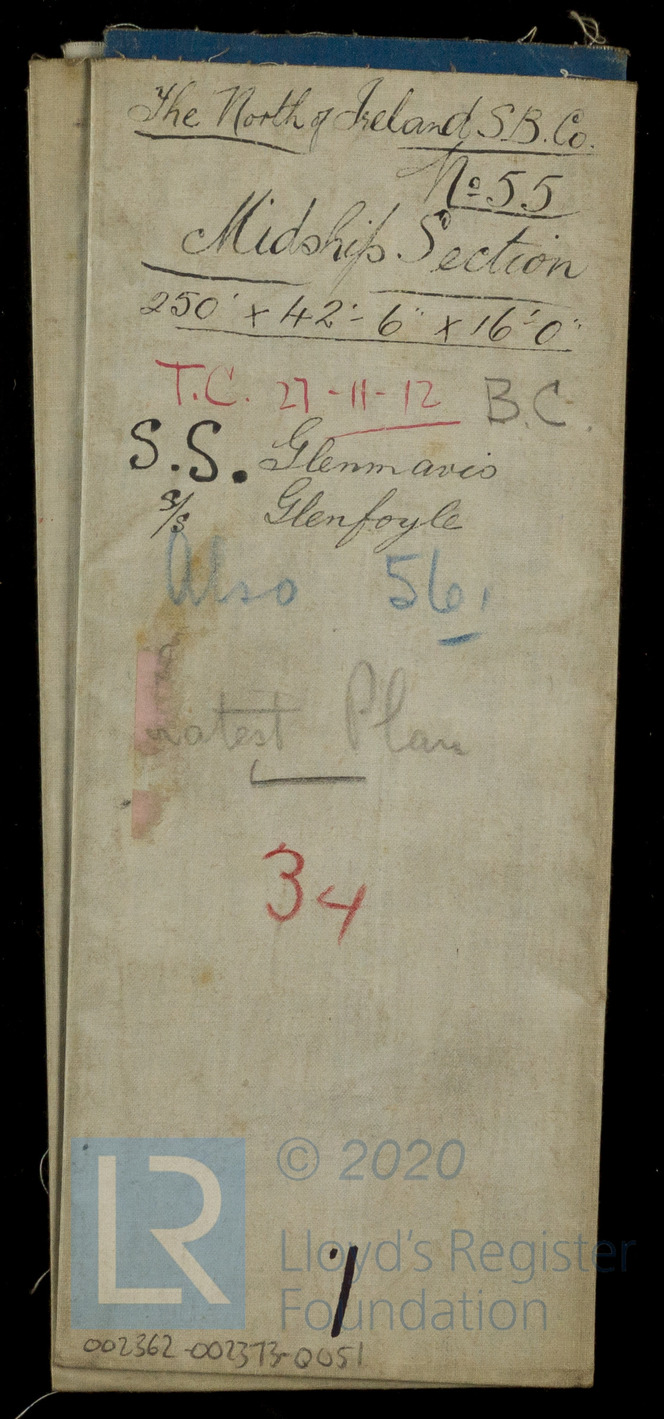 The North of Ireland S.B. Co.
No 55
Midship Section
250' x 42'-6" x 16'-0"
T.C. 27-11-12 B.C.
S.S. Glenmavis
s/s Glenfoyle
Also 56.
Latest Plan
34
1
LR
© 2020
Lloyd's Register
Foundation
002362-002373-0051